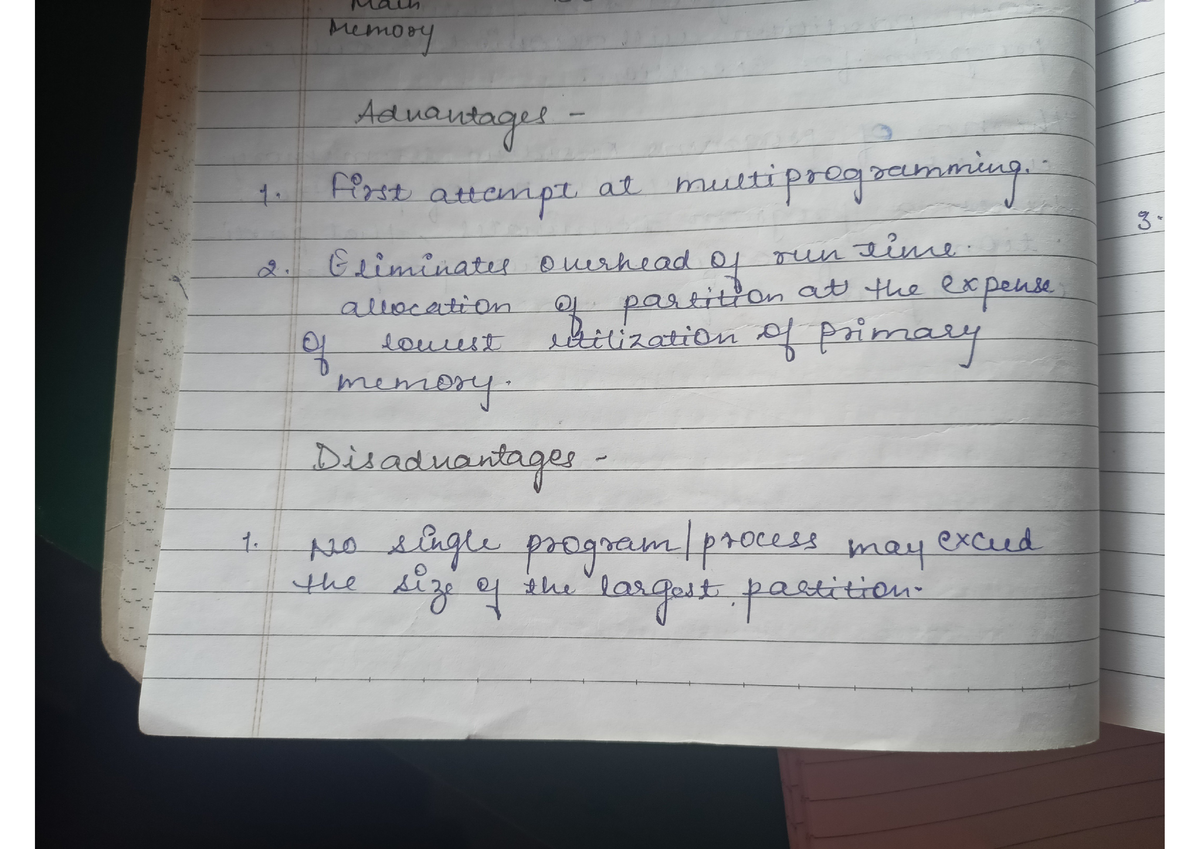 Main
Memory
Advantages -
1. First attempt at multiprogramming.
2. Eliminates overhead of run time.
allocation of partition at the expense
of lowest utilization of primary
memory.
Disadvantages -
1. No single program/process may exceed
the size of the largest partition.
3.